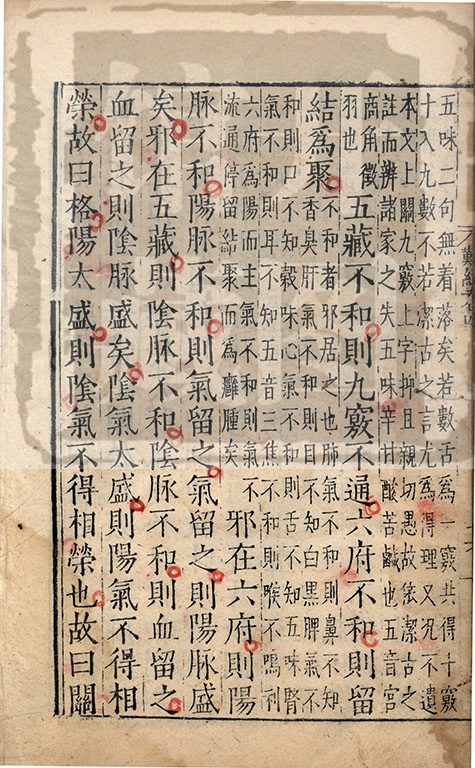 五味二句無着落矣若數舌爲一竅共得十竅
十入九數不若潔古之言尤爲得理又況不遺
本文上關九竅上字抑且親切愚故依潔古之
註而辨諸家之失五味辛甘酸苦鹹也五音宮
商角徵
羽也
五藏不和則九竅不通六府不和則留
結爲聚
不和者邪居之也肺氣不和則鼻不知
香臭肝氣不和則目不知白黑脾氣不
和則口不知穀味心氣不和則舌不知五味腎
氣不和則耳不知五音三焦不和則喉不鳴利
六府爲陽而主氣不和則氣不
流通停留結聚而爲癰腫矣
邪在六府則陽
脉不和陽脉不和則氣留之氣留之則陽脉盛
矣邪在五藏則陰脉不和陰脉不和則血留之
血留之則陰脉盛矣陰氣太盛則陽氣不得相
榮故曰格陽太盛則陰氣不得相榮也故曰關